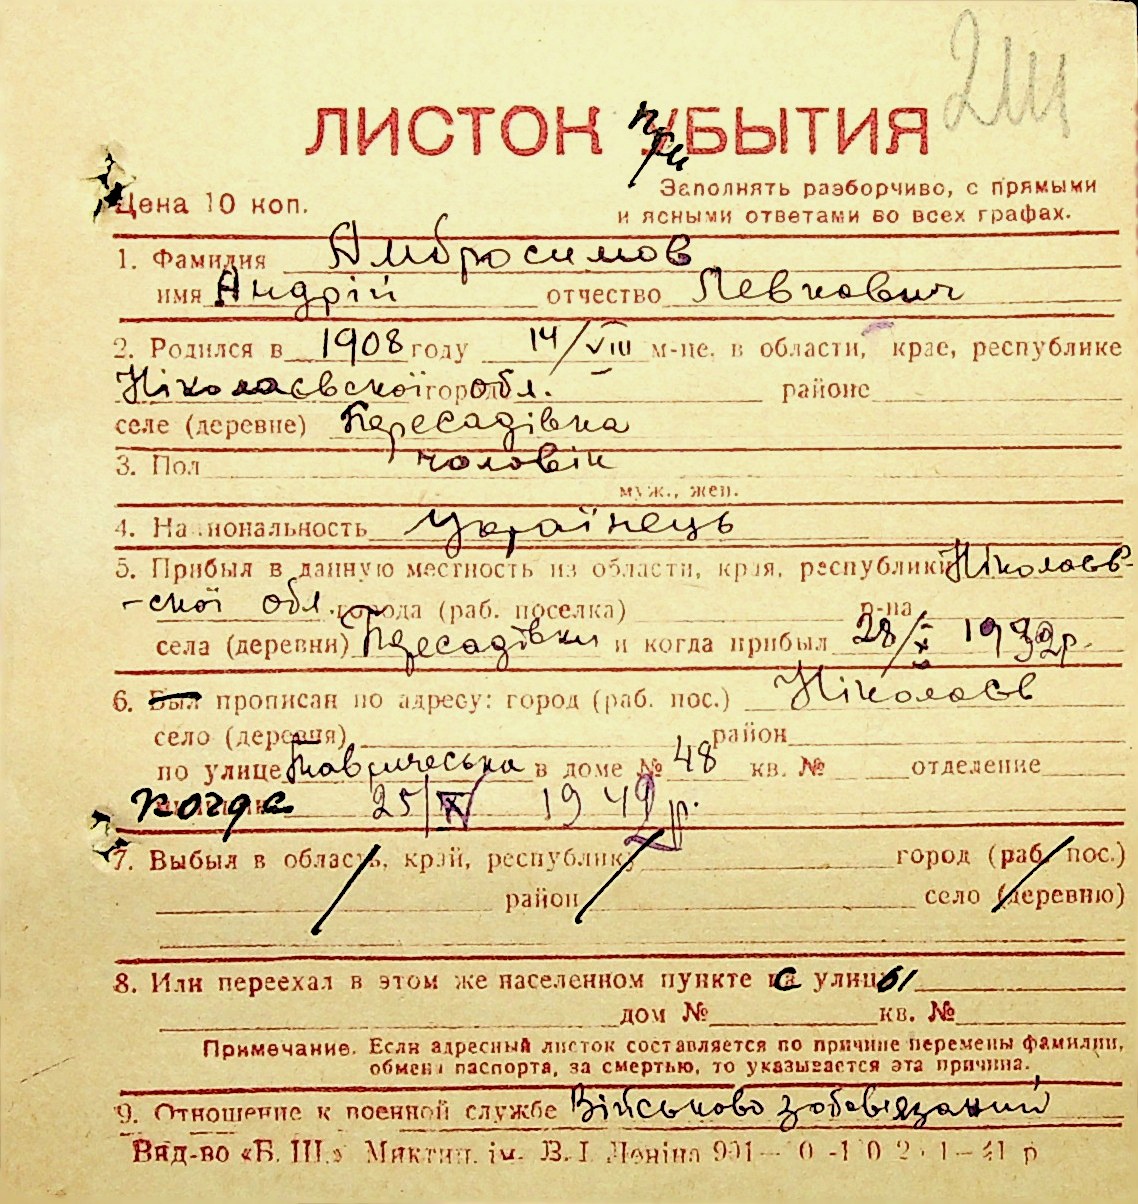 2111
ЛИСТОК при УБЫТИЯ
Цена 10 коп.
Заполнять разборчиво, с прямыми
и ясными ответами во всех графах.
1. Фамилия Амбросимов
имя Андрій отчество Левкович
2. Родился в 1908 году 14/VIII м-це, в области, крае, республике
Ніколаєвської город обл. районе
селе (деревне) Пересадівка
3. Пол чоловік
муж., жен.
4. Национальность Українець
5. Прибыл в данную местность из области, края, республики Ніколаєв-
-ської обл. города (раб. поселка) р-на
села (деревни) Пересадівки и когда прибыл 28/X 1932р.
6. Был прописан по адресу: город (раб. пос.) Ніколаєв
село (деревня) район
по улице Таврическа в доме № 48 кв. № отделение
когда 25/IV 1942р.
7. Выбыл в область, край, республику город (раб. пос.)
район село (деревню)
8. Или переехал в этом же населенном пункте с улицы
дом № кв. №
Примечание. Если адресный листок составляется по причине перемены фамилии,
обмена паспорта, за смертью, то указывается эта причина.
9. Отношение к военной службе Військово зобов'язаний
Вид-во «Б. Ш.» Миктип. ім. В. І. Леніна